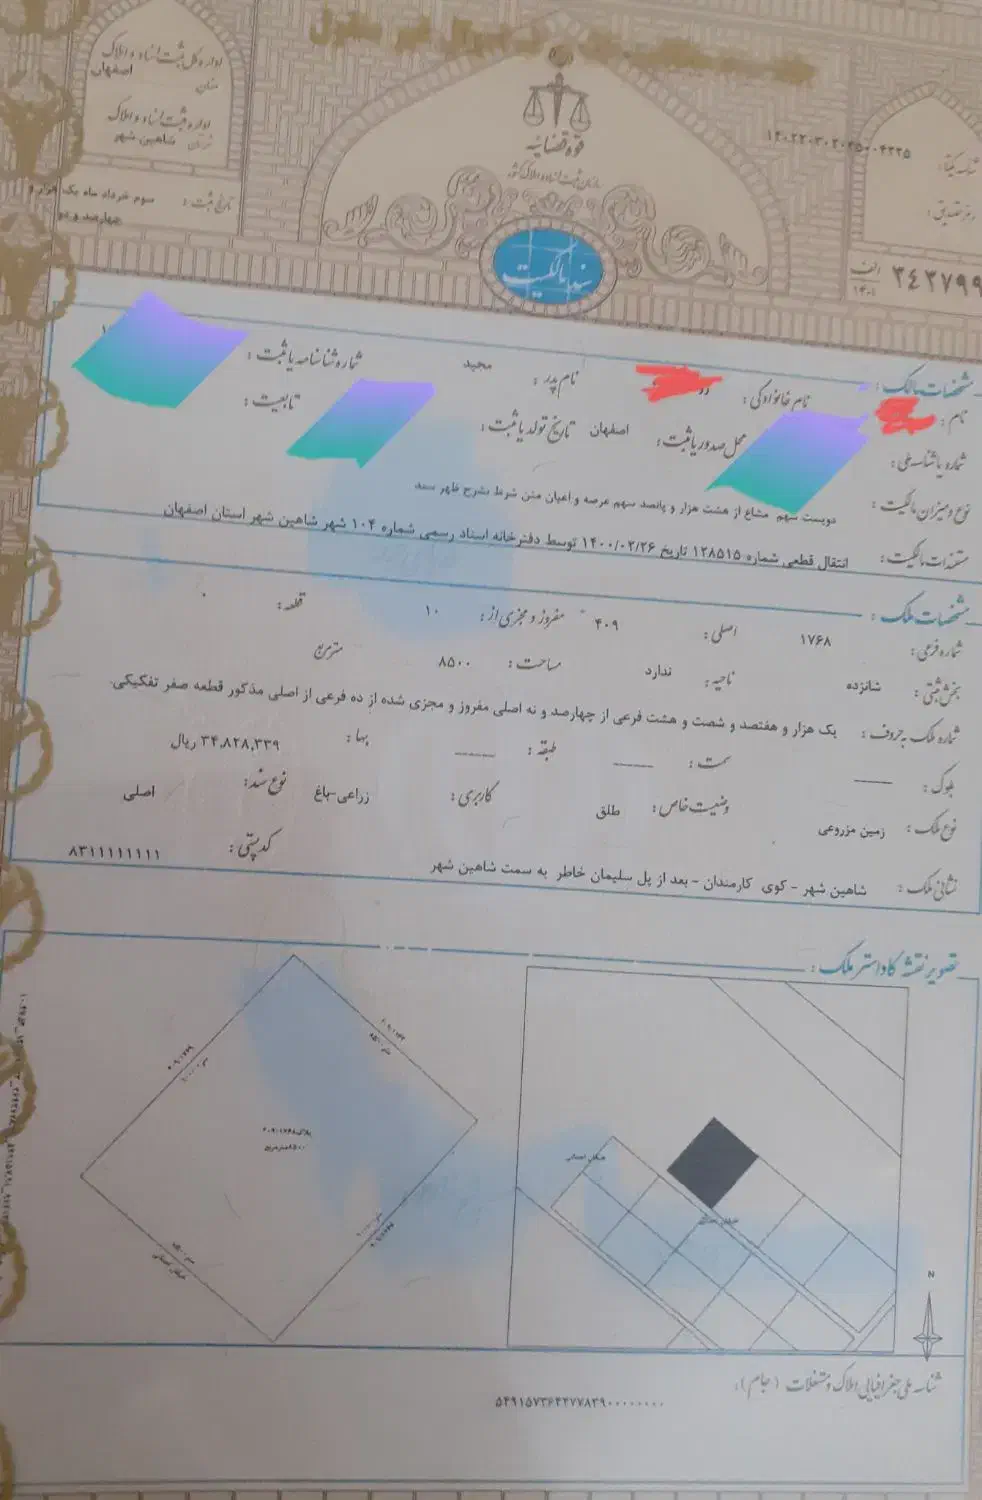 اداره کل ثبت اسناد و املاک
استان اصفهان
اداره ثبت اسناد و املاک
شاهین شهر
تاریخ ثبت: سوم خرداد ماه یک هزار و
چهارصد و دو
قوه قضائیه
سازمان ثبت اسناد و املاک کشور
سند مالکیت
شناسه یکتا: ۱۴۰۲۲۰۳۰۲۰۲۵۰۰۴۲۲۵
رمز تصدیق:
الف
۱۴۰۱
۳۴۲۷۹۹
مشخصات مالک:
نام: نام خانوادگی: نام پدر: مجید شماره شناسنامه یا ثبت:
شماره یا شناسه ملی: محل صدور یا ثبت: اصفهان تاریخ تولد یا ثبت: تابعیت:
نوع و میزان مالکیت: دویست سهم مشاع از هشت هزار و پانصد سهم عرصه و اعیان متن شرط بشرح ظهر سند
مستندات مالکیت: انتقال قطعی شماره ۱۲۸۵۱۵ تاریخ ۱۴۰۰/۰۲/۲۶ توسط دفترخانه اسناد رسمی شماره ۱۰۴ شهر شاهین شهر استان اصفهان
مشخصات ملک:
شماره فرعی: ۱۷۶۸ اصلی: ۴۰۹ مفروز و مجزی از: ۱۰ قطعه: ۰
بخش ثبتی: شانزده ناحیه: ندارد مساحت: ۸۵۰۰ مترمربع
شماره ملک به حروف: یک هزار و هفتصد و شصت و هشت فرعی از چهارصد و نه اصلی مفروز و مجزی شده از ده فرعی از اصلی مذکور قطعه صفر تفکیکی.
بلوک: ـــــ سمت: ـــــ طبقه: ـــــ بها: ۳۴,۸۲۸,۳۳۹ ریال
نوع ملک: زمین مزروعی وضعیت خاص: طلق کاربری: زراعی-باغ نوع سند: اصلی
نشانی ملک: شاهین شهر - کوی کارمندان - بعد از پل سلیمان خاطر به سمت شاهین شهر کد پستی: ۸۳۱۱۱۱۱۱۱۱
تصویر نقشه کاداستر ملک:
N
شناسه ملی جغرافیایی املاک و مستغلات (جام):